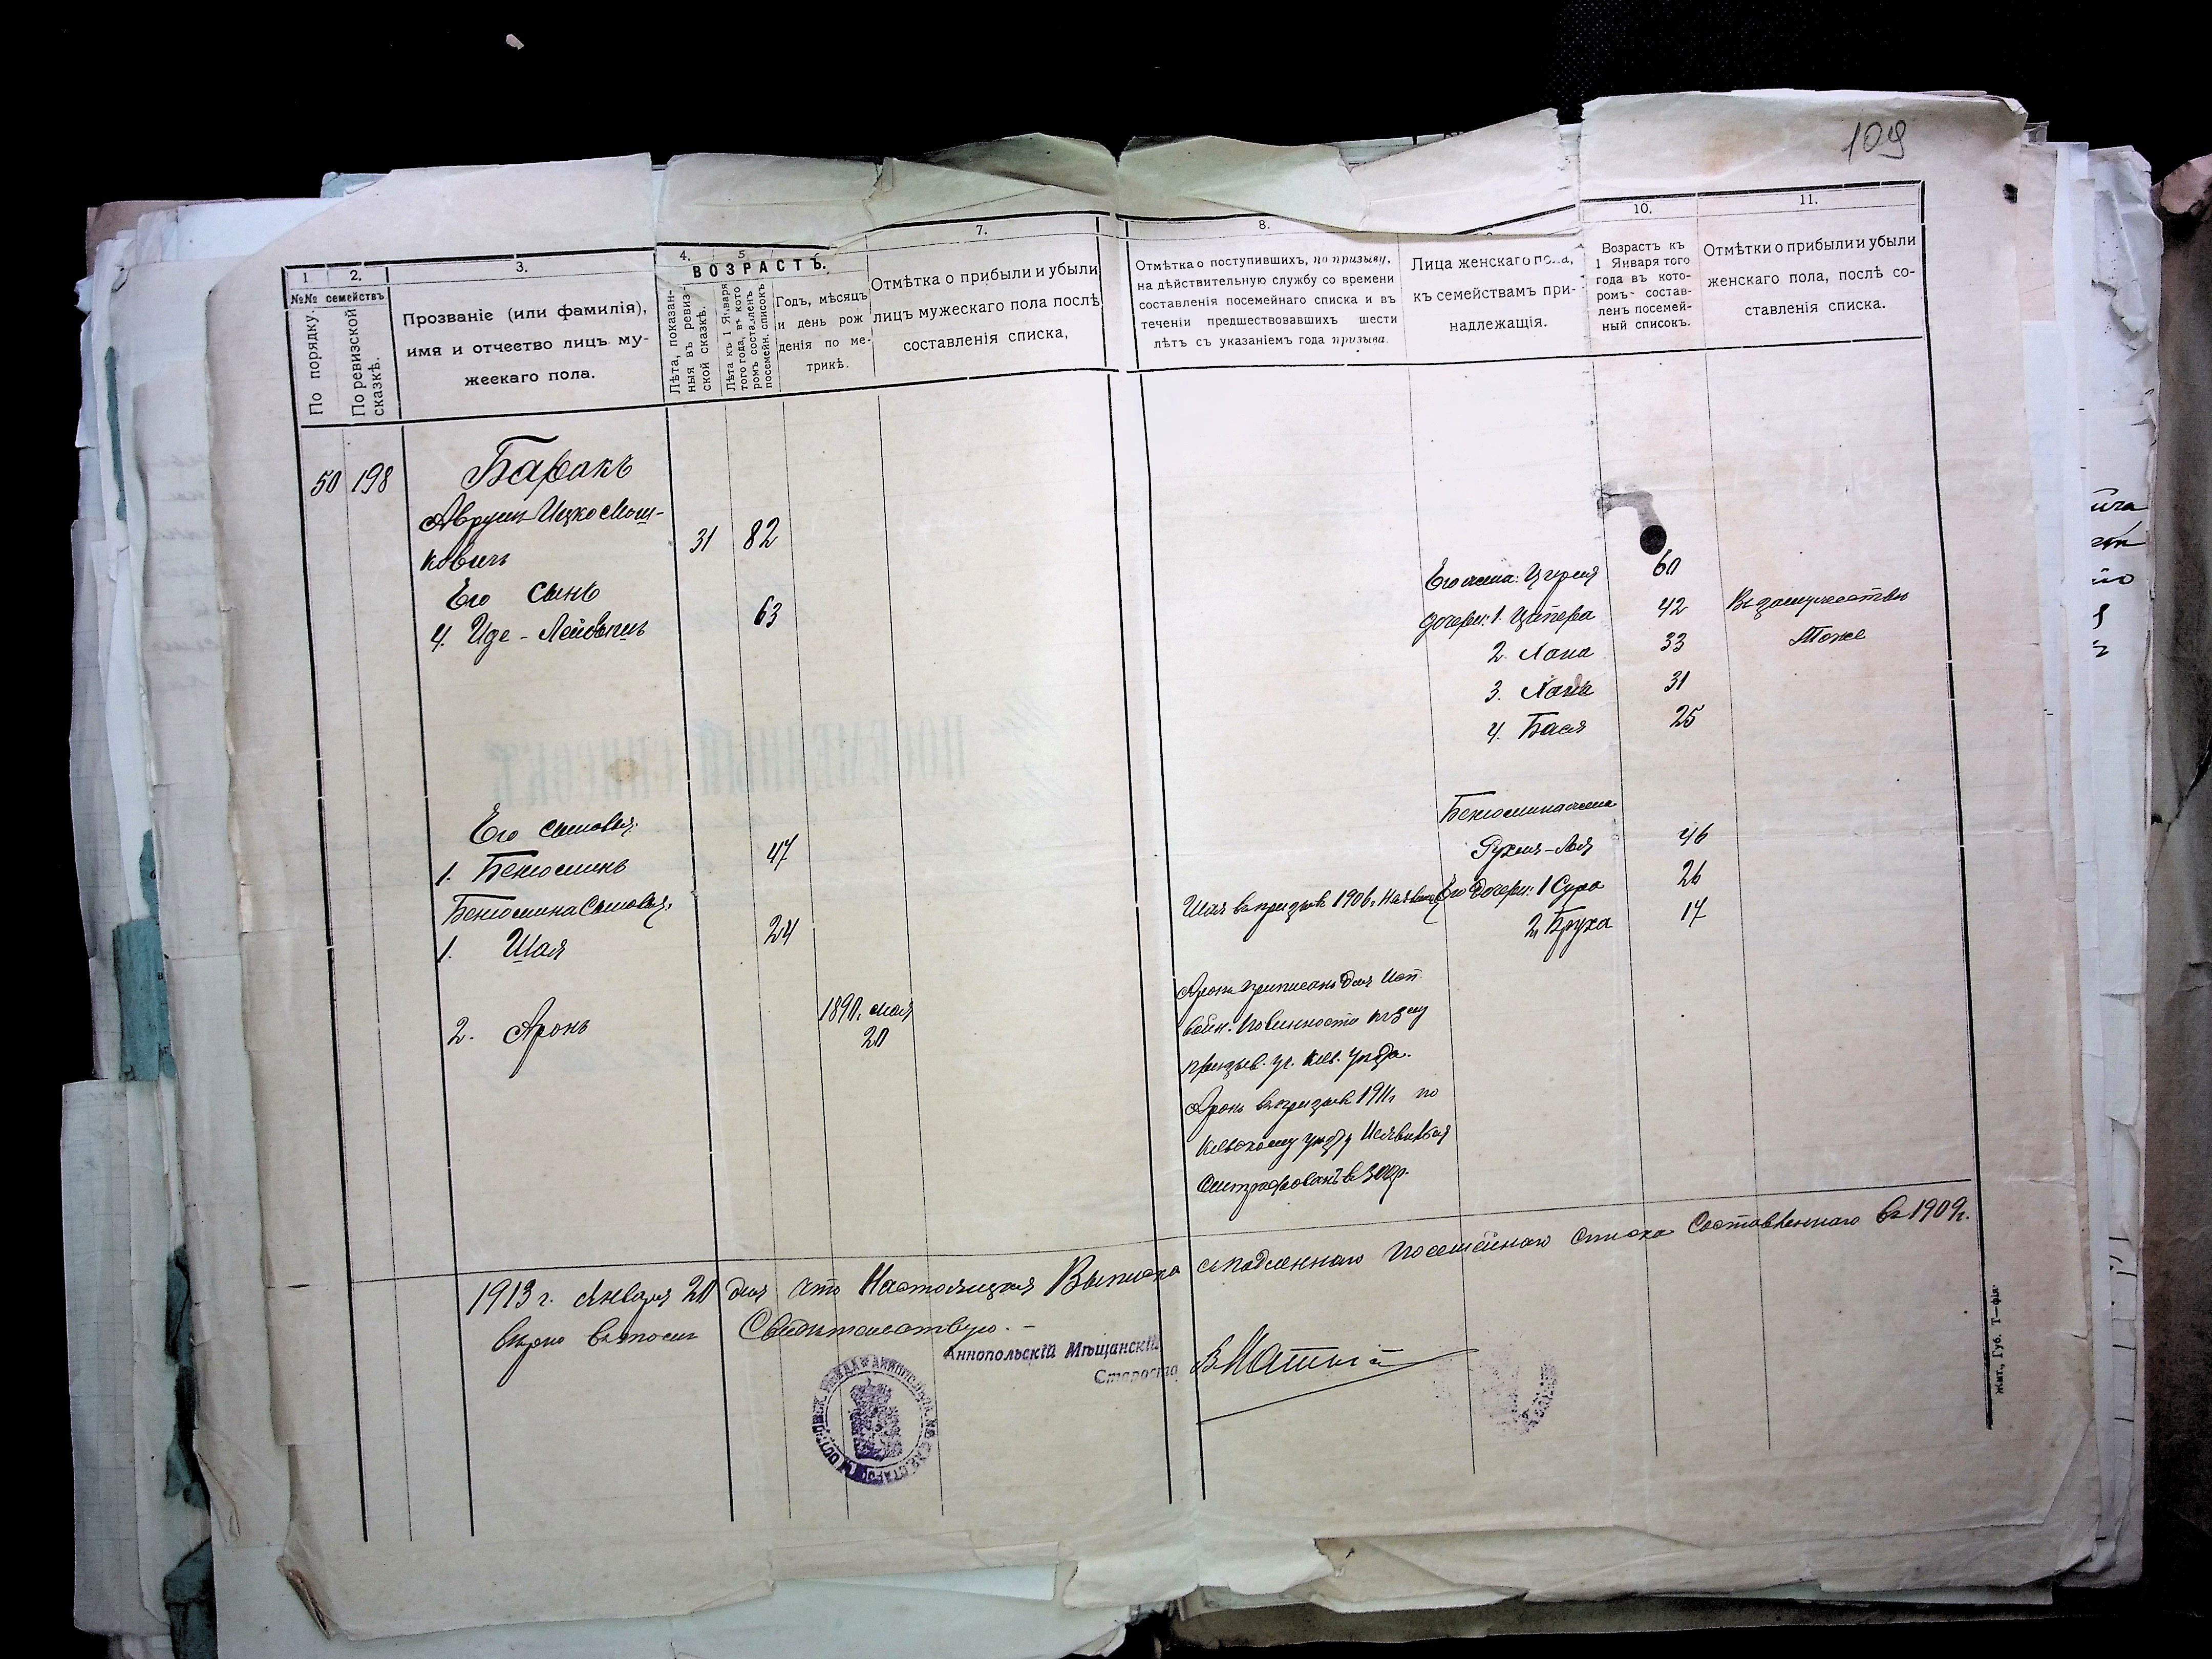 109
1
2.
3.
4.
5
7.
8.
10.
11.
№№ семействъ
По порядку.
По ревизской сказкѣ.
Прозваніе (или фамилія),
имя и отчество лицъ му-
жескаго пола.
ВОЗРАСТЪ.
Лѣта, показан-
ныя въ ревиз-
ской сказкѣ.
Лѣта къ 1 Января
того года, въ кото
ромъ составленъ
посемейн. списокъ
Годъ, мѣсяцъ
и день рож
денія по ме-
трикѣ.
Отмѣтка о прибыли и убыли
лицъ мужескаго пола послѣ
составленія списка,
Отмѣтка о поступившихъ, по призыву,
на дѣйствительную службу со времени
составленія посемейнаго списка и въ
теченіи предшествовавшихъ шести
лѣтъ съ указаніемъ года призыва.
Лица женскаго пола,
къ семействамъ при-
надлежащія.
Возрастъ къ
1 Января того
года въ кото-
ромъ состав-
ленъ посемей-
ный списокъ.
Отмѣтки о прибыли и убыли
женскаго пола, послѣ со-
ставленія списка.
50 198
Баракъ
Аврум-Ицко Мош-
ковичъ
31 82
Его сынъ
4. Иде-Лейбышъ
63
Его сыновья:
1. Бенюминъ
47
Бенюмина Сыновья:
1. Шая
24
2. Аронъ
1890 г. мая
20
Шая въ призывѣ 1906 г. Неявился
Аронъ приписанъ для Исп.
воин. повинности къ 3 му
призыв. уч. Кіев. уѣзда.
Аронъ въ призывѣ 1911 г. по
Кіевскому уѣзду
Его жена: 60
дочери: 1. 42 Въ замужествѣ
2. Хана 33 Тоже
3. 31
4. Бася 25
Бенюмина жена
Рухля-Лея 46
Его Дочери: 1 Сура 26
2. Бруха 17
1913 г. Января 20 дня что Настоящая Выписка съ подленнаго посемейнаго списка Составленнаго въ 1909 г.
вѣрно Свидѣтельствую. –
Аннопольскій Мѣщанскій
Староста
Жит., Губ. Т—фія.
ПОСЕМЕЙНЫЙ СПИСОКЪ